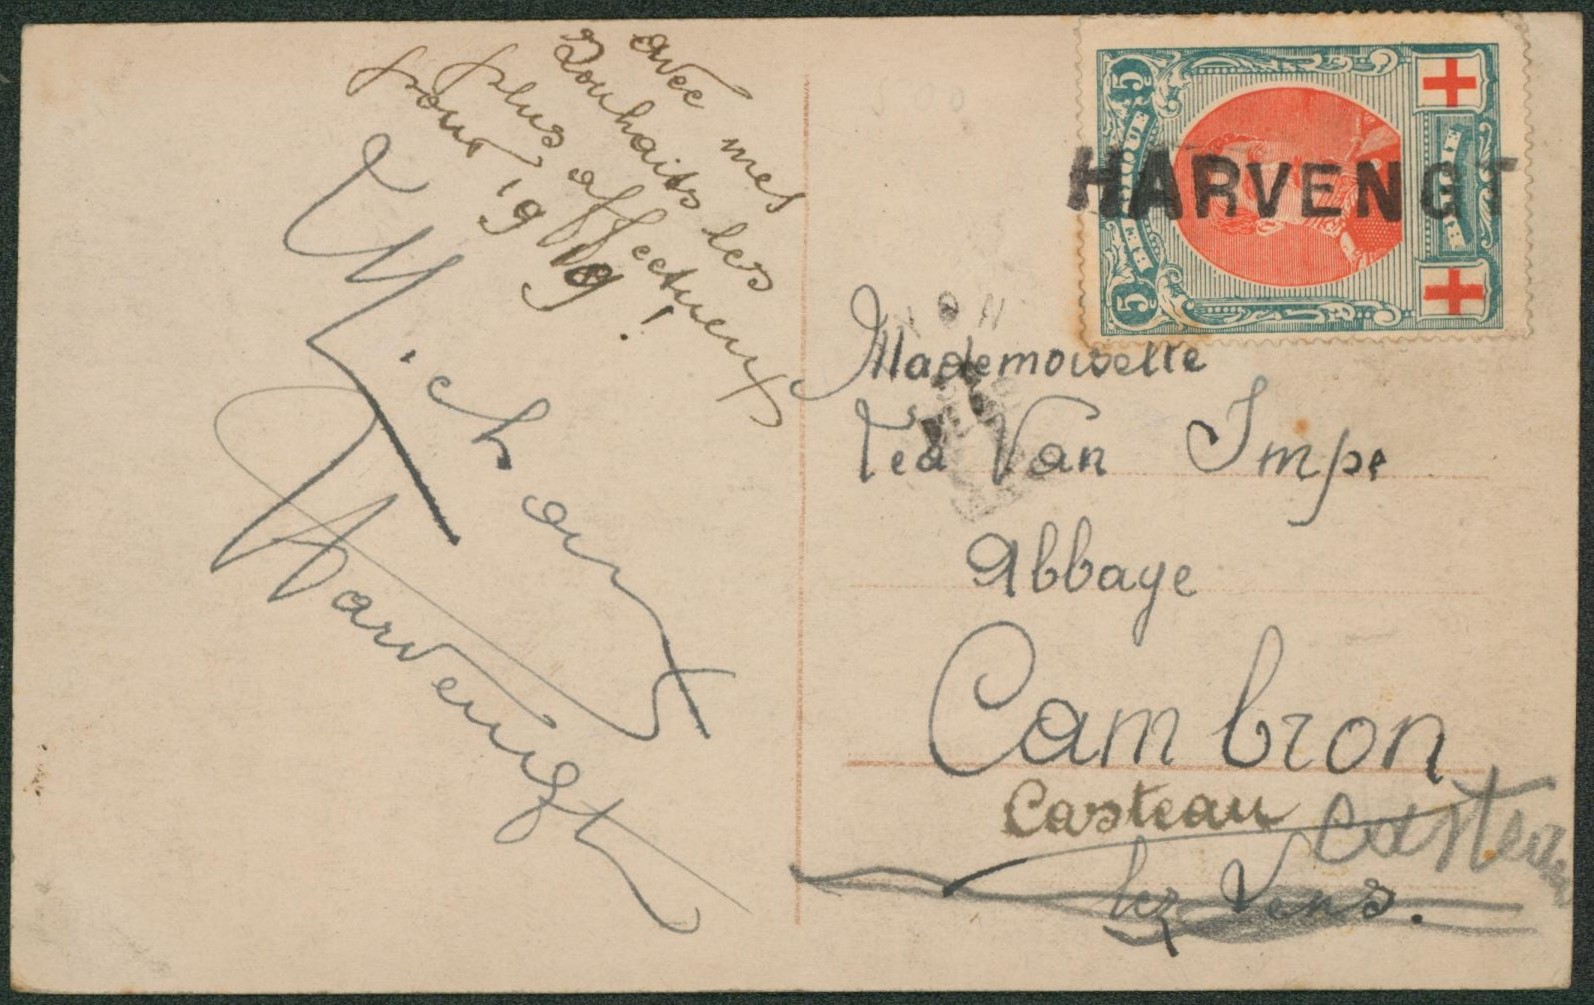 avec mes
souhaits les
plus affectueux
pour 1919!
Michaux
Harvengt
HARVENGT
5
5
Mademoiselle
Van Impe
Abbaye
Cambron
Casteau Casteau
lez Vens.